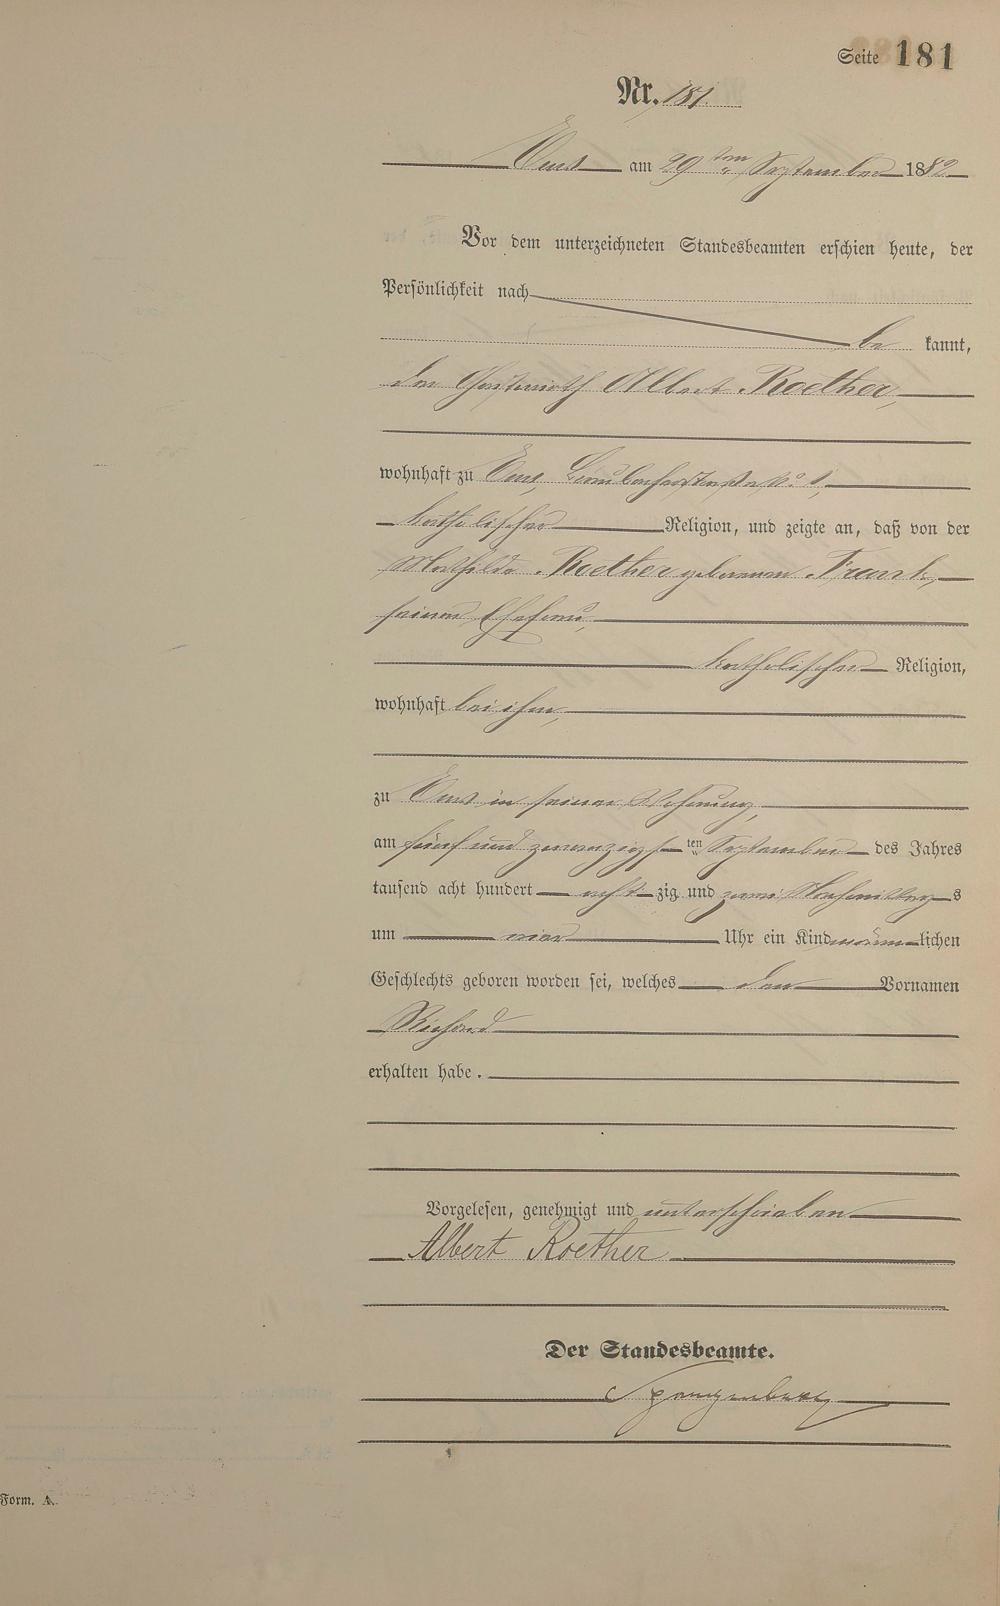 Seite 181
Nr. 181.
Ems am 29ten September 1882
Vor dem unterzeichneten Standesbeamten erschien heute, der
Persönlichkeit nach
be kannt,
der Gastwirth Albert Roether,
wohnhaft zu Ems, No 1,
katholischer Religion, und zeigte an, daß von der
Mathilde Roether geborenen Frank,
seiner Ehefrau,
katholischer Religion,
wohnhaft bei ihm,
zu Ems in seiner Wohnung,
am fünf und zwanzigsten September des Jahres
tausend acht hundert acht zig und zwei Nachmittags
um vier Uhr ein Kind männlichen
Geschlechts geboren worden sei, welches den Vornamen
Richard
erhalten habe.
Vorgelesen, genehmigt und unterschrieben
Albert Roether
Der Standesbeamte.
Spangenberg
Form. A.